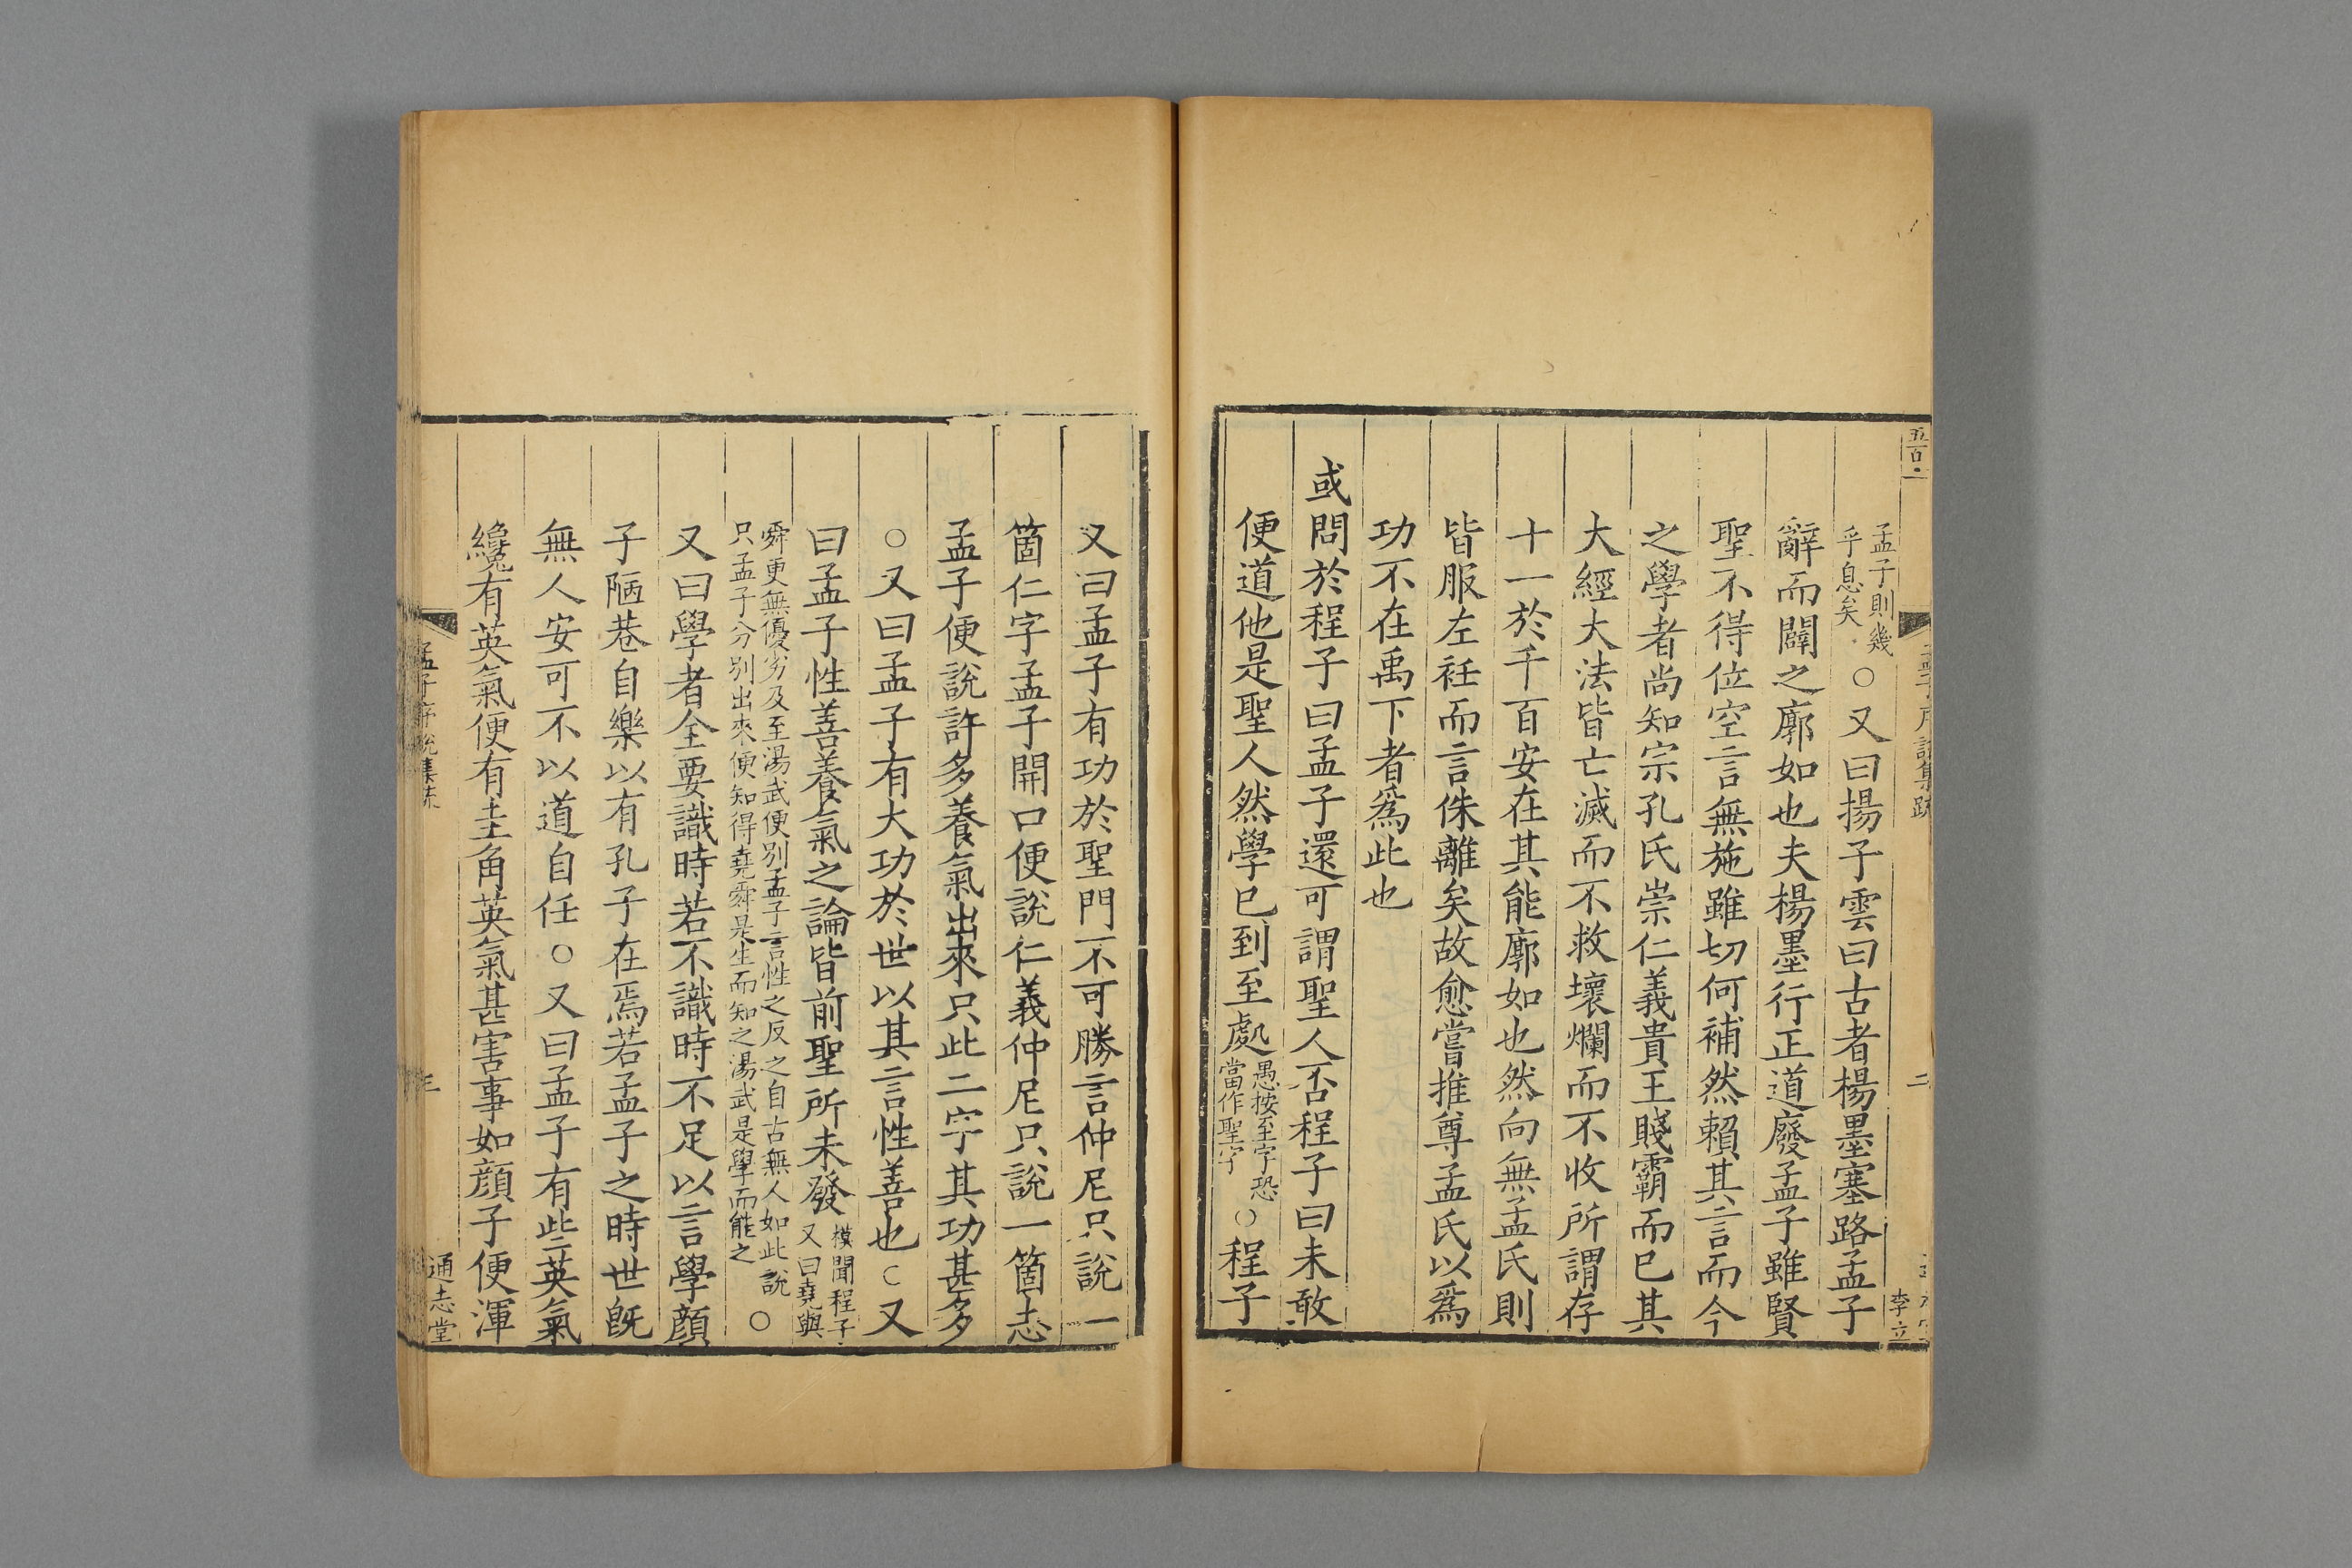 五百二
孟子則幾
乎息矣
○又曰揚子雲曰古者楊墨塞路孟子
辭而闢之廓如也夫楊墨行正道廢孟子雖賢
聖不得位空言無施雖切何補然賴其言而今
之學者尚知宗孔氏崇仁義貴王賤霸而已其
大經大法皆亡滅而不救壞爛而不收所謂存
十一於千百安在其能廓如也然向無孟氏則
皆服左衽而言侏離矣故愈嘗推尊孟氏以爲
功不在禹下者爲此也
或問於程子曰孟子還可謂聖人否程子曰未敢
便道他是聖人然學已到至處
愚按至字恐
當作聖字
○程子
又曰孟子有功於聖門不可勝言仲尼只說一
箇仁字孟子開口便說仁義仲尼只說一箇志
孟子便說許多養氣出來只此二字其功甚多
○又曰孟子有大功於世以其言性善也○又
曰孟子性善養氣之論皆前聖所未發
模聞程子
又曰堯與
舜更無優劣及至湯武便別孟子言性之反之自古無人如此說
只孟子分別出來便知得堯舜是生而知之湯武是學而能之
○
又曰學者全要識時若不識時不足以言學顏
子陋巷自樂以有孔子在焉若孟子之時世既
無人安可不以道自任○又曰孟子有些英氣
纔有英氣便有圭角英氣甚害事如顏子便渾
孟子序說集疏
三
通志堂
二
李立